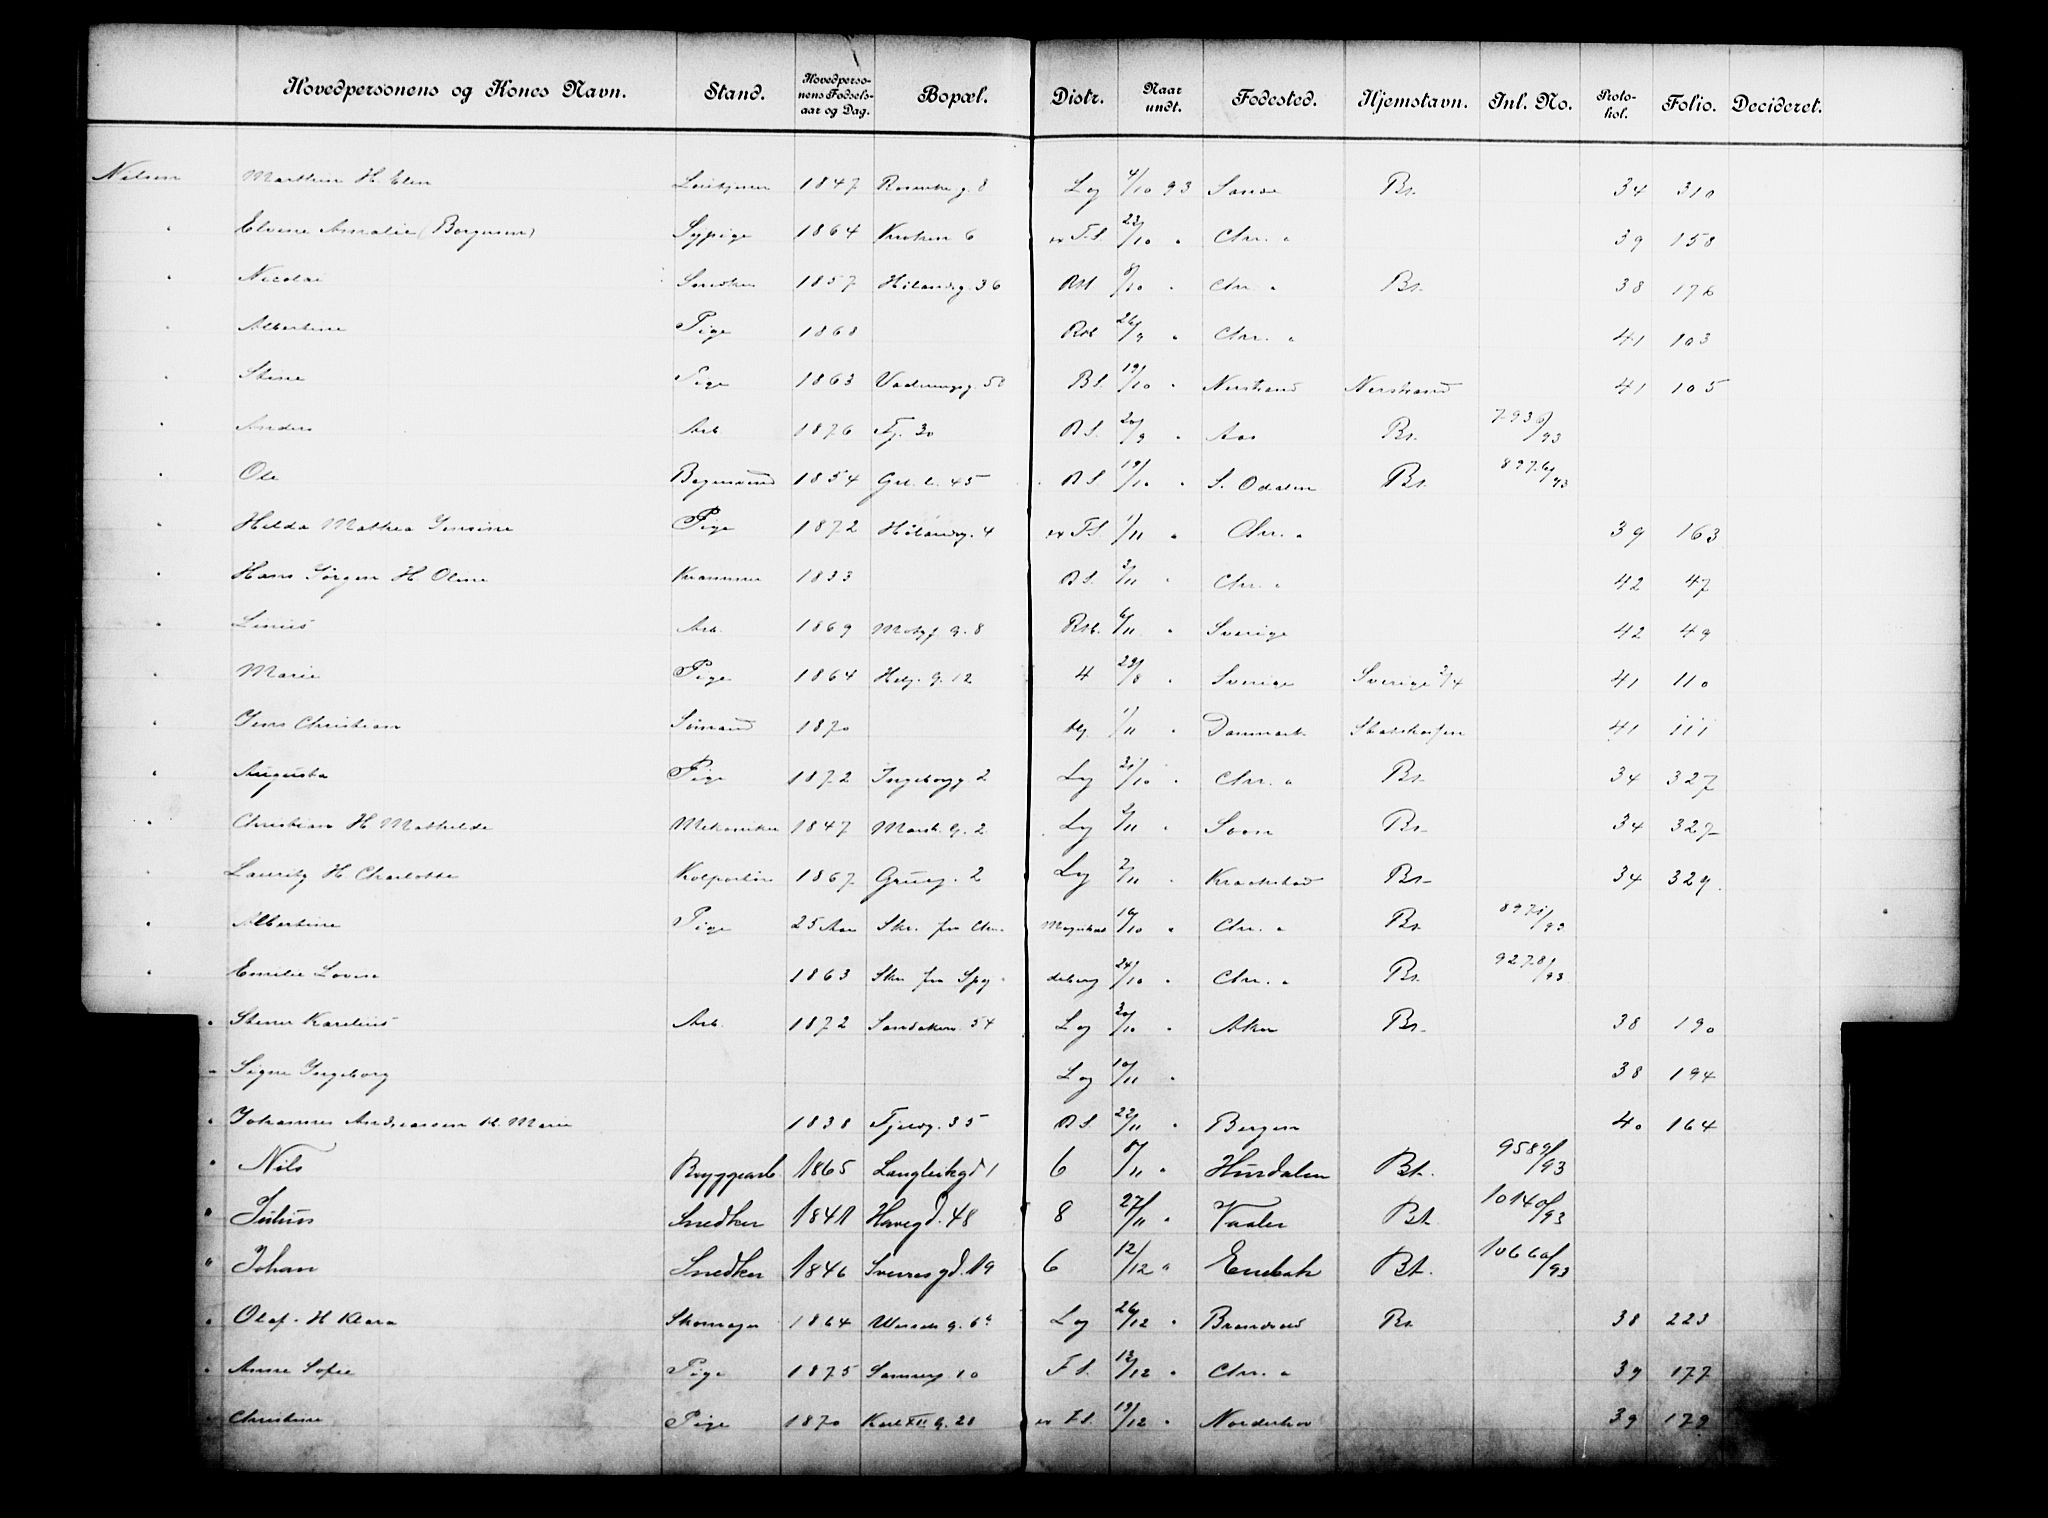 Hovedpersonens og Kones Navn. Stand. Hovedperso-nens Fødsels-aar og Dag. Bopæl. Distr. Naar undt. Fødested. Hjemstavn. Inl. No. Proto-kol. Folio. Decideret.
Nilsen Marthin H. Elen 1847 Rosenkr. g. 8 Lg 4/10 93 Bt. 34 310
" Elvine Amalie (Borgersen) Sypige 1864 Kroken 6 ex F.S. 23/10 " Chr. a 39 158
" Nicolai Snedker 1857 Hølandsg. 36 8/10 " Chr. a Bt. 38 176
" Albertine Pige 1868 26/9 " Chr. a 41 103
" Stine Pige 1863 B.S. 19/10 " Nerstrand Nerstrand 41 105
" Anders Arb. 1876 Fj. 30 B.S. 20/9 " Aas Bt. 7936/93
" Ole 1854 Grl. l. 45 B.S. 19/10 " S. Odalen Bt. 8976/93
" Hilda Mathea Jensine Pige 1872 Hølandsg. 4 ex F.S. 1/11 " Chr. a 39 163
" Hans Jørgen H Oline Kræmmer 1833 B.S. 2/11 " Chr. a 42 47
" Linus Arb. 1869 Motzf. g. 8 6/11 " Sverige 42 49
" Marie Pige 1864 Helg. g. 12 4 29/8 " Sverige Sverige 2/4 41 110
" Jens Christian Sømand 1870 1/11 " Danmark 41 111
" Augusta Pige 1872 Ingeborgg. 2 Lg 21/10 " Chr. a Bt. 34 327
" Christian H Mathilde Mekaniker 1847 Mark. g. 2 Lg 2/11 " Soon Bt. 34 327
" Lauritz H Charlotte Kolportør 1867 Grueg. 2 Lg 2/11 " Kraakstad Bt. 34 329
" Albertine Pige 25 Aar Skr. fra Chr. Magistrat 16/10 " Chr. a Bt. 8971/93
" Emilie Lovise 1863 Skr. fra Spydeberg 24/10 " Chr. a Bt. 9278/93
" Stener Karelius Arb. 1872 Sandakerv. 54 Lg 20/10 " Aker Bt. 38 190
" Signe Ingeborg Lg 10/11 " 38 194
" Johannes Andreassen H. Marie 1838 Fjeldg. 35 B.S. 22/11 " Bergen 40 164
" Nils Bryggearb. 1865 Langleikgd 1 6 8/11 " Hurdalen Bt. 9589/93
" Julius Snedker 1841 Havegd. 48 8 27/11 " Vaaler Bt. 10140/93
" Johan Snedker 1846 Sverresgd. 19 6 12/12 " Enebak Bt. 10660/93
" Olaf H Klara Skomager 1864 Lg 26/12 " Bt. 38 223
" Anne Sofie Pige 1875 Sannerg. 10 F.S. 12/12 " Chr. a 39 177
" Christine Pige 1870 Karl XII g. 28 ex F.S. 19/12 " Norderhov 39 179